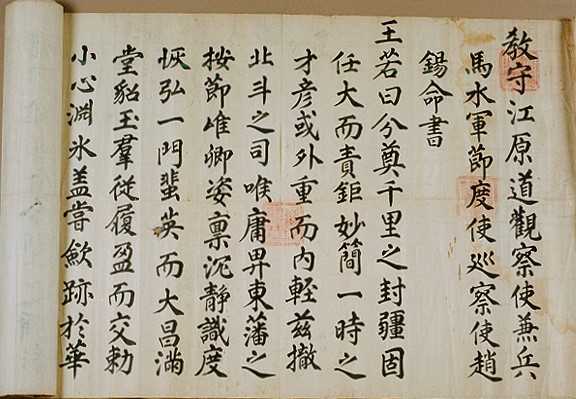 教守江原道觀察使兼兵
馬水軍節度使巡察使趙
錫命書
王若曰分奠千里之封疆固
任大而責鉅妙簡一時之
才彦或外重而內輕玆撤
北斗之司喉庸畀東藩之
按節惟卿姿稟沉靜識度
恢弘一門蜚英而大昌滿
堂貂玉羣從履盈而交勅
小心淵氷盖嘗歛跡於華